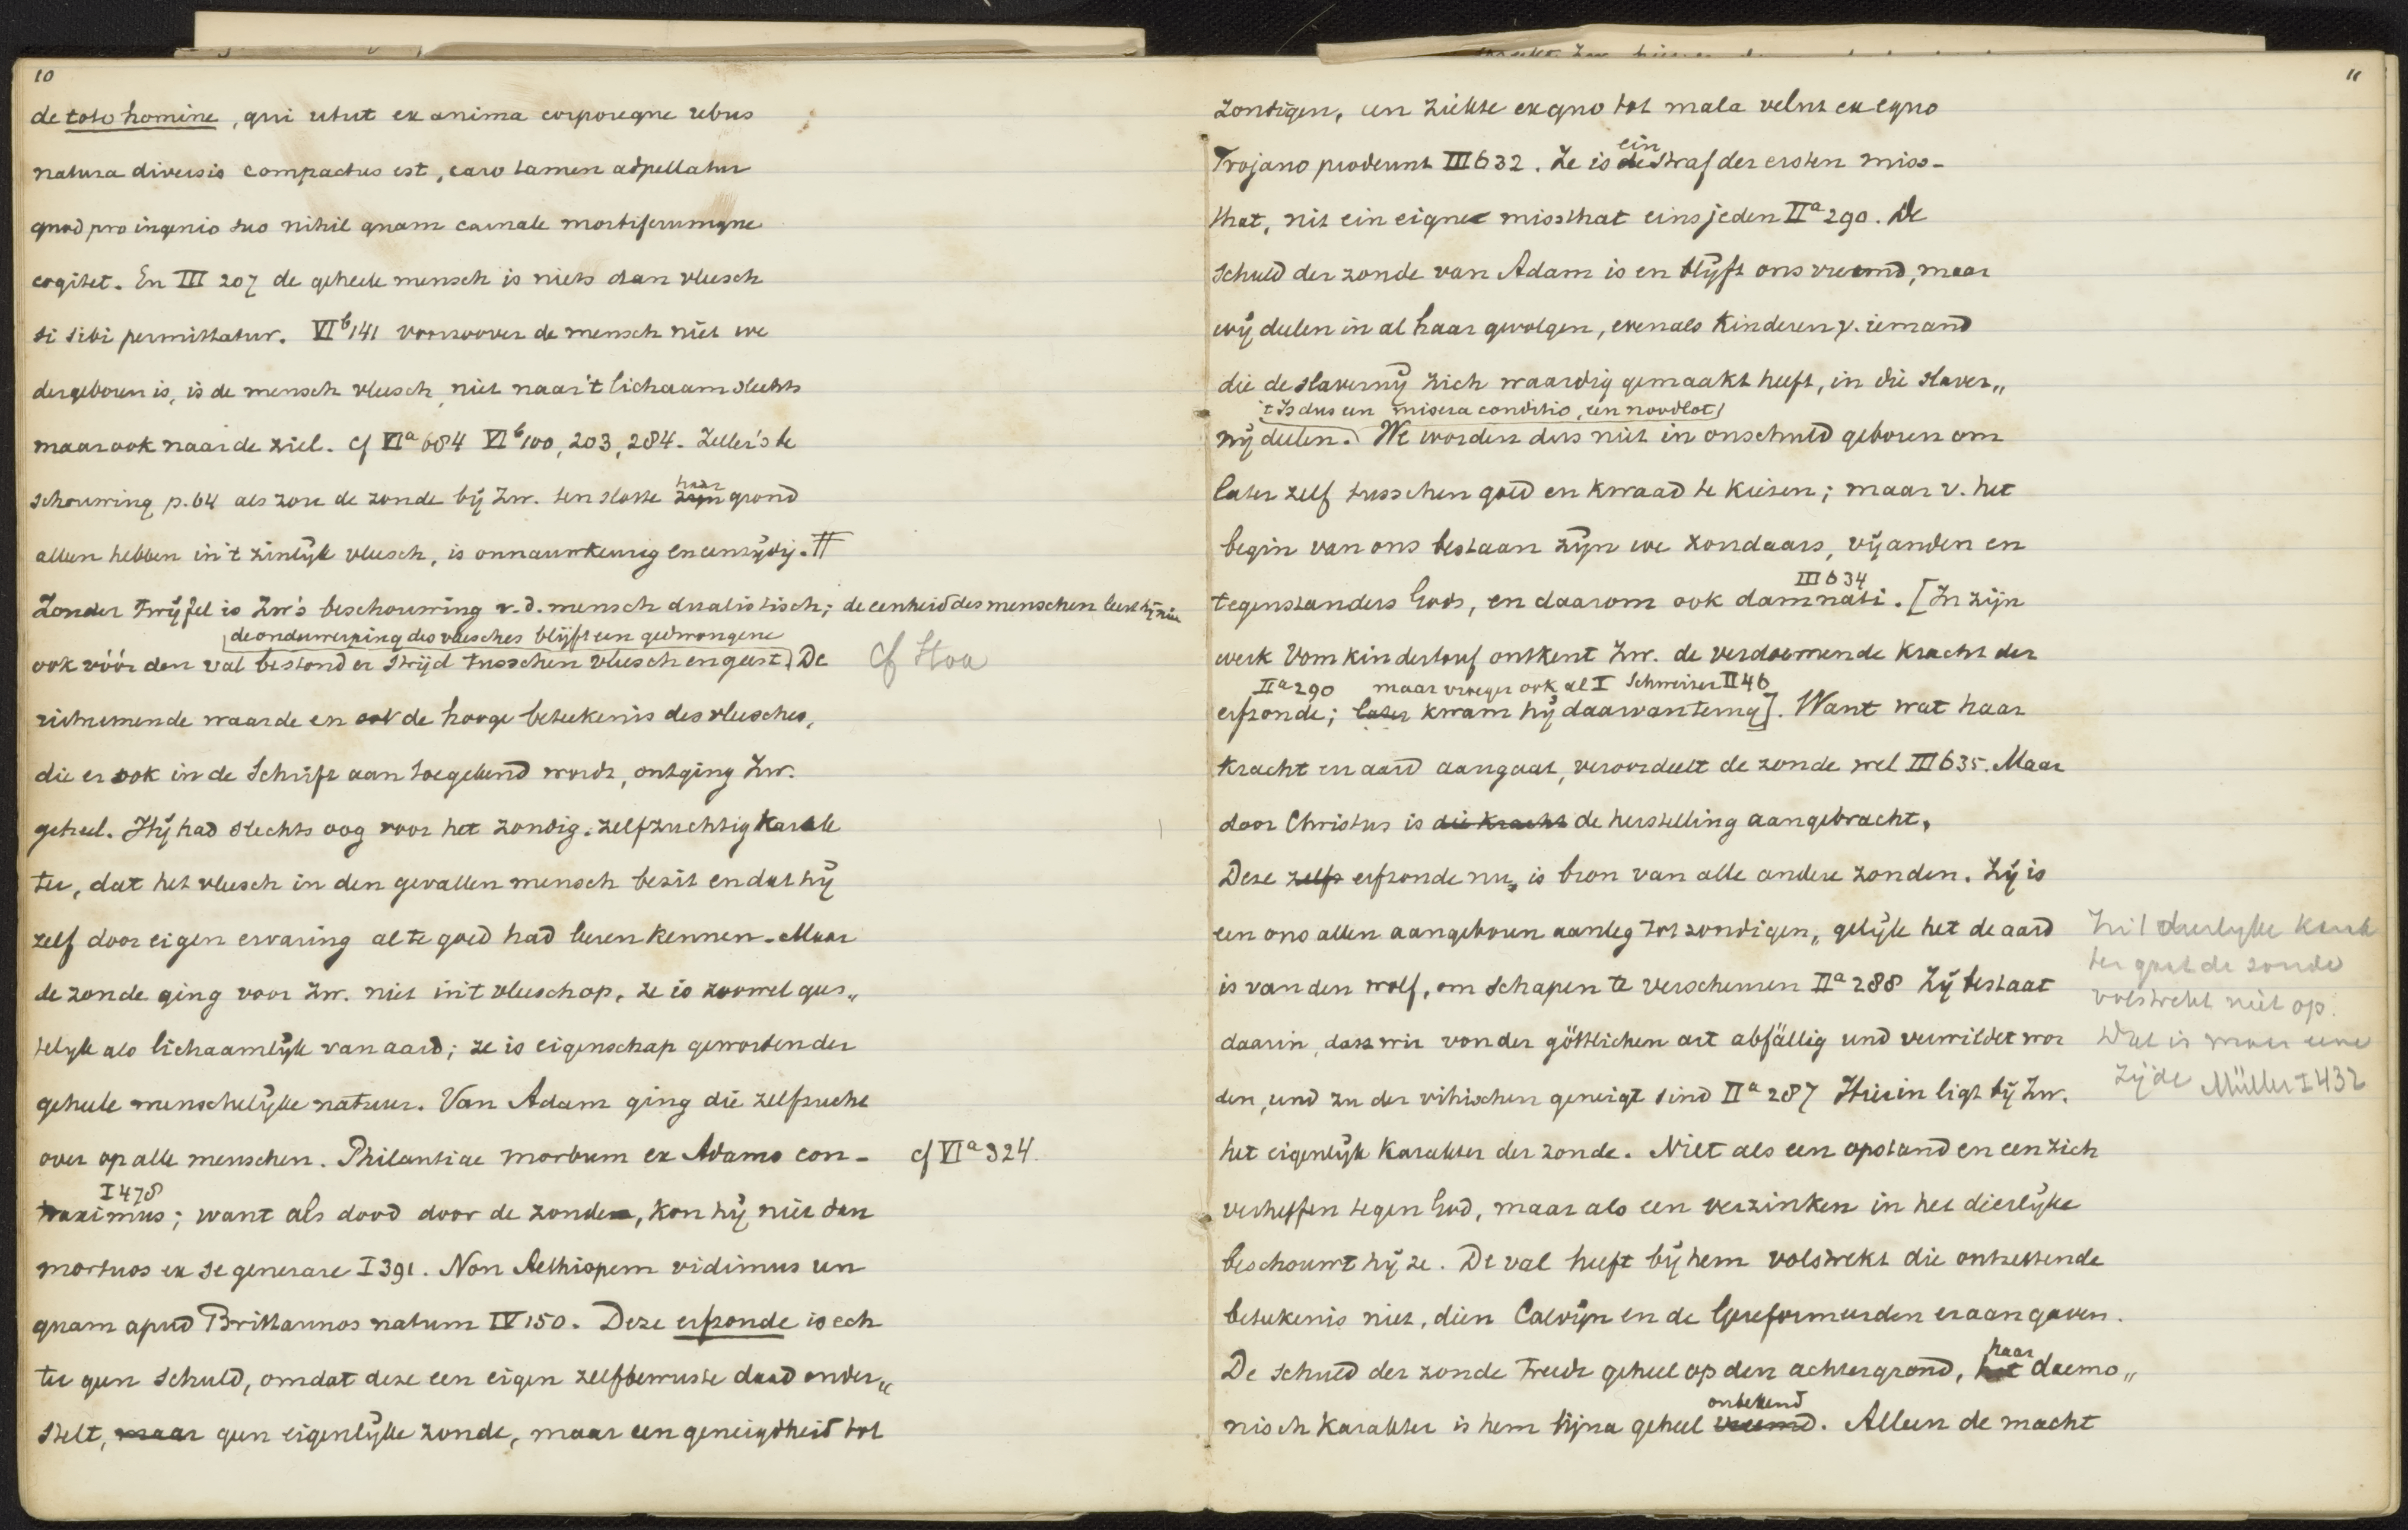 10
de toto homine, qui utut ex anima corporeque rebus
natura diversis compactus est, caro tamen adpellatur
quod pro ingenio suo nihil quam carnale mortiferumque
cogitet. En III 207 de geheele mensch is niets dan vleesch
si sibi permittatur. VIb 141 voorzoover de mensch niet we
dergeboren is, is de mensch vleesch, niet naar 't lichaam slechts
maar ook naar de ziel. cf VIa 684 VIb 100, 203, 284. Zeller's be
schouwing p. 64 als zou de zonde bij Zw. ten slotte zijn haar grond
alleen hebben in 't zinlijk vleesch, is onnauwkeurig en eenzijdig. #
Zonder twijfel is Zw's beschouwing v. d. mensch dualistisch; de eenheid des menschen leert hij niet
de onderwerping des vleesches blijft een gedwongene
ook vóór den val bestond er strijd tusschen vleesch en geest. De
cf Hoa
uitnemende waarde en ook de hooge beteekenis des vleesches,
die er ook in de Schrift aan toegekend wordt, ontging Zw.
geheel. Hij had slechts oog voor het zondig. zelfzuchtig karak
ter, dat het vleesch in den gevallen mensch bezit en dat hij
zelf door eigen ervaring al te goed had leeren kennen. Maar
de zonde ging voor Zw. niet in 't vleesch op, ze is zoowel gees„
telijk als lichaamlijk van aard; ze is eigenschap geworden der
geheele menschelijke natuur. Van Adam ging die zelfzucht
over op alle menschen. Philautiae morbum ex Adamo con-
cf VIa 324.
I 478
traximus; want als dood door de zonden, kon hij niet dan
mortuos ex se generare I 391. Non Aethiopem vidimus un
quam apud Brittannos natum IV 150. Deze erfzonde is ech
ter geen schuld, omdat deze een eigen zelfbewuste daad onder„
stelt, maar geen eigenlijke zonde, maar een geneigdheid tot
11
zondigen, een ziekte ex quo tot mala velut ex equo
ein
Trojano prodeunt III 632. Ze is de straf der ersten miss-
that, nit ein eigne missthat eins jeden IIa 290. De
schuld der zonde van Adam is en blijft ons vreemd, maar
wij deelen in al haar gevolgen, evenals kinderen v. iemand
die de slavernij zich waardig gemaakt heeft, in die slaver„
't Is dus een misera conditio, een noodlot
nij deelen. We worden dus niet in onschuld geboren om
later zelf tusschen goed en kwaad te kiezen; maar v. het
begin van ons bestaan zijn we zondaars, vijanden en
III 634
tegenstanders Gods, en daarom ook damnati. [In zijn
werk Vom kindertouf ontkent Zw. de verdoemende kracht der
IIa 290 maar vroeger ook al I Schweizer II 46
erfzonde; later kwam hij daarvan terug]. Want wat haar
kracht en aard aangaat, veroordeelt de zonde wel III 635. Maar
door Christus is die kracht de herstelling aangebracht.
Deze zelfs erfzonde nu, is bron van alle andere zonden. Zij is
een ons allen aangeboren aanleg tot zondigen, gelijk het de aard
is van den wolf, om schapen te verscheuren IIa 288 Zij bestaat
daarin, dass wir von der göttlichen art abfällig und verwildet wor
den, und zu der vihischen geneigt sind IIa 287 Hierin ligt bij Zw.
In 't dierlijke karak
ter gaat de zonde
volstrekt niet op.
Dat is maar eene
zijde Müller I 432
het eigenlijk karakter der zonde. Niet als een opstand en een zich
verheffen tegen God, maar als een verzinken in het dierlijke
beschouwt hij ze. De val heeft bij hem volstrekt die ontzettende
beteekenis niet, dien Calvijn en de Gereformeerden er aan gaven.
haar
De schuld der zonde treedt geheel op den achtergrond, het daemo„
onbekend
nisch karakter is hem bijna geheel vreemd. Alleen de macht